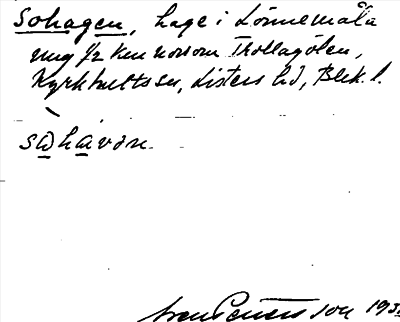 Sohagen, hage i Lönnemåla
ung 1/2 km norom Trollagölen,
Kyrkhults sn, Listers hd, Blek. l.
sωhavan.
Sven Petersson 193